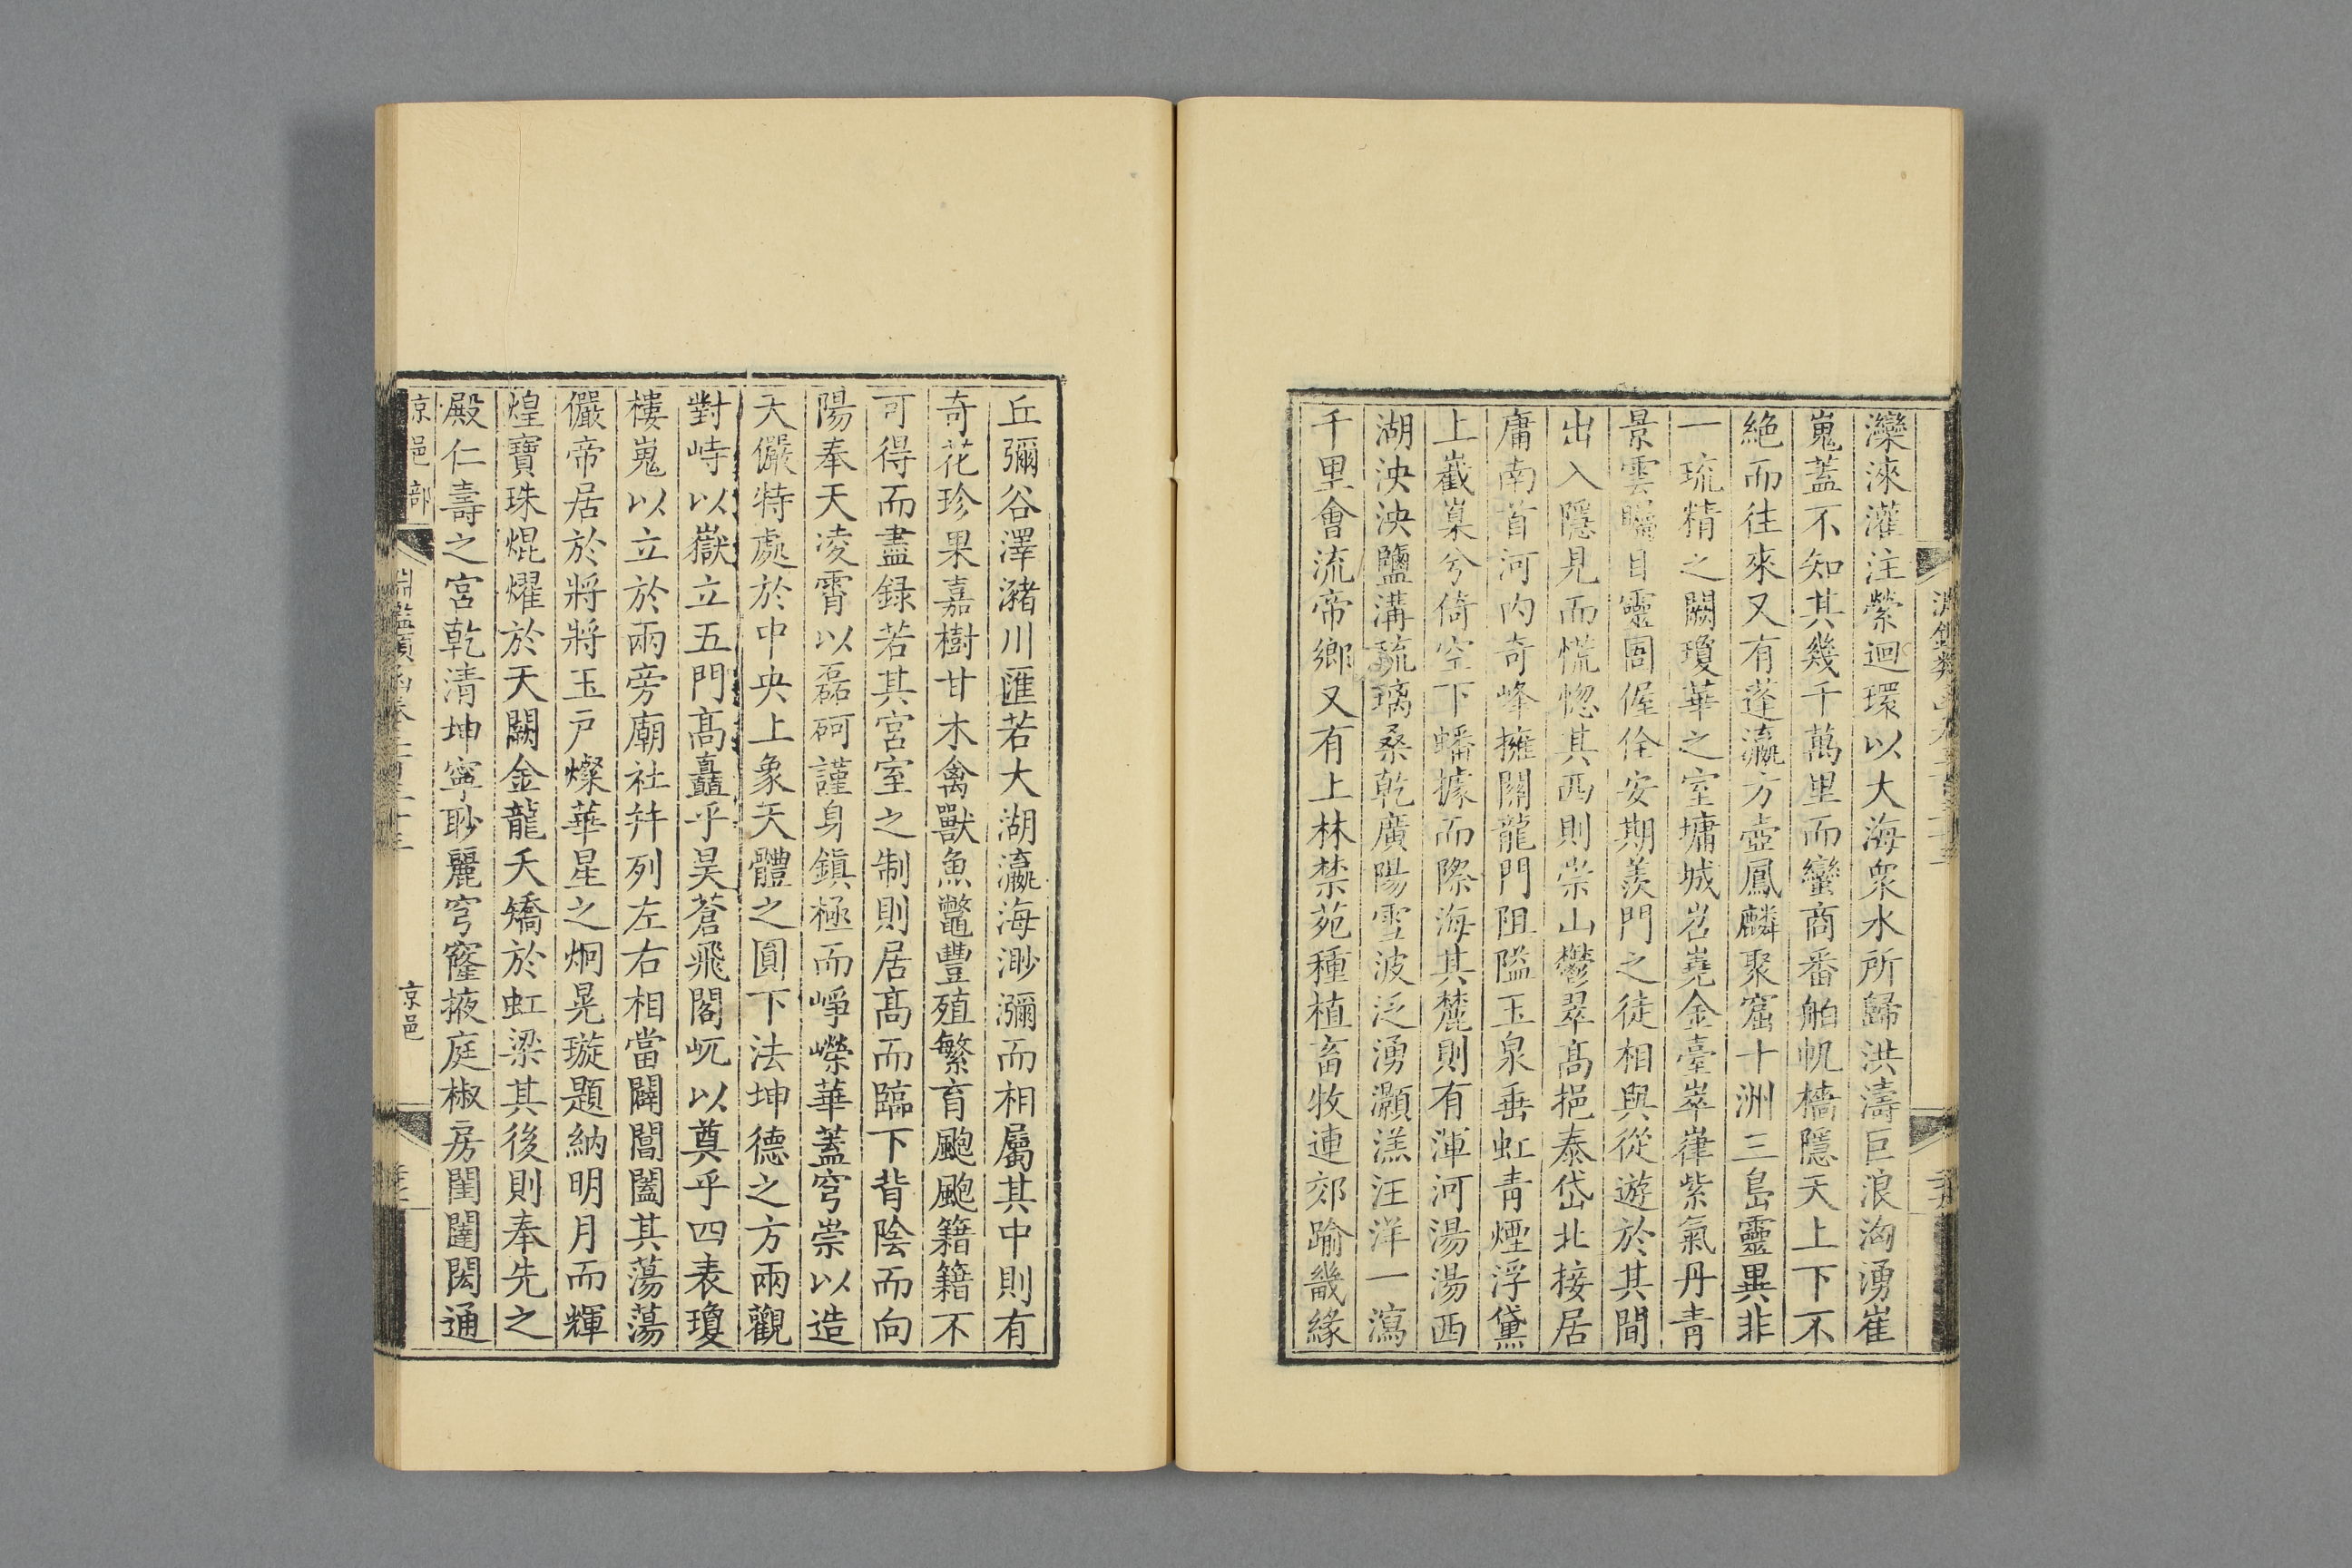 灤淶灌注縈迴環以大海衆水所歸洪濤巨浪洶湧崔
嵬蓋不知其幾千萬里而蠻商番舶帆檣隱天上下不
絶而往來又有蓬瀛方壺鳳麟聚窟十洲三島靈異非
一琉精之闕瓊華之室墉城岧嶤金臺崒嵂紫氣丹青
景雲矚目靈圄偓佺安期羨門之徒相與從遊於其間
出入隱見而慌惚其西則崇山鬱翠高挹泰岱北接居
庸南首河内奇峰擁關龍門阻隘玉泉垂虹青煙浮黛
上巀嶪兮倚空下蟠據而際海其麓則有渾河湯湯西
湖泱泱鹽溝琉璃桑乾廣陽雪波泛湧灝溔汪洋一瀉
千里會流帝鄉又有上林禁苑種植畜牧連郊踰畿緣
丘彌谷澤瀦川匯若大湖瀛海渺瀰而相屬其中則有
奇花珍果嘉樹甘木禽獸魚鼈豐殖繁育颰颰籍籍不
可得而盡録若其宮室之制則居髙而臨下背陰而向
陽奉天凌霄以磊砢謹身鎮極而崢嶸華蓋穹崇以造
天儼特處於中央上象天體之圓下法坤德之方兩觀
對峙以嶽立五門髙矗乎昊蒼飛閣屼以奠乎四表瓊
樓嵬以立於兩旁廟社幷列左右相當闢閶闔其蕩蕩
儼帝居於將將玉戸燦華星之炯晃璇題納明月而輝
煌寶珠焜燿於天闕金龍夭矯於虹梁其後則奉先之
殿仁壽之宮乾清坤寧眇麗穹窿掖庭椒房閨闥閎通
京邑部
京邑